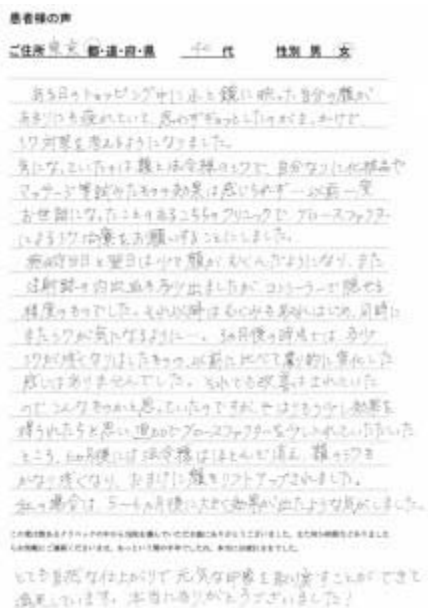 患者様の声
ご住所 東京 都・道・府・県 40代 性別 男 女
ある日のショッピング中にふと鏡に映った自分の顔が
あまりにも疲れていて、思わずぎょっとしたのがきっかけで
シワ対策を考えるようになりました。
気になっていたのは額と法令線のシワで、自分なりに化粧品や
マッサージ等試みたものの効果は感じられず…以前一度
お世話になったことのあるこちらのクリニックで グロースファクター
によるシワ治療をお願いすることにしました。
施術当日と翌日は少々顔がむくんだようになり、また
注射跡の内出血も多少出ましたが コンシーラーで隠せる
程度のものでした。それ以降はむくみも
またシワが気になるように…。3ヵ月後の時点では、多少
シワが浅くなりはしたものの、以前に比べて劇的に変化した
感じはありませんでした。それでも改善はされていた
のでこんなものかと思っていたのですが、やはりもう少し効果を
得られたらと思い、追加でグロースファクターを少し入れていただいた
ところ、6ヵ月後には法令線はほとんど消え、額のシワも
かなり浅くなり、おまけに顔もリフトアップされました。
私の場合は、5〜6ヵ月後に大きく効果が出たような気がしました。
とても自然な仕上がりで元気な印象を取り戻すことができて
満足しています。本当にありがとうございました！